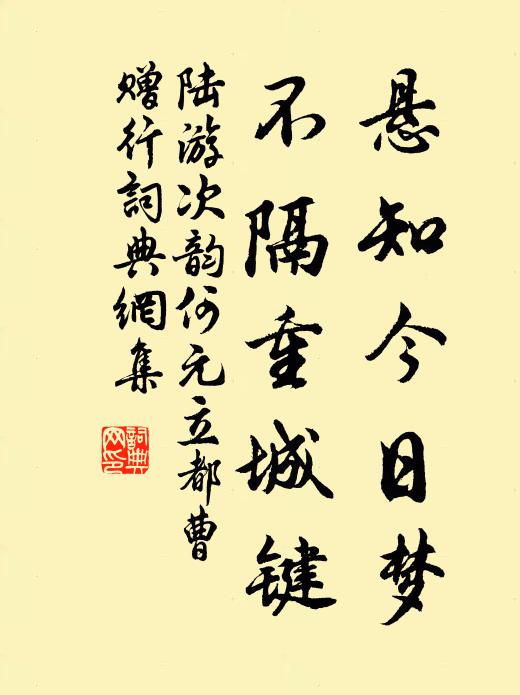 悬知今日梦
不隔重城键
陆游次韵何元立都曹
赠行詞典網集
詞典
网印